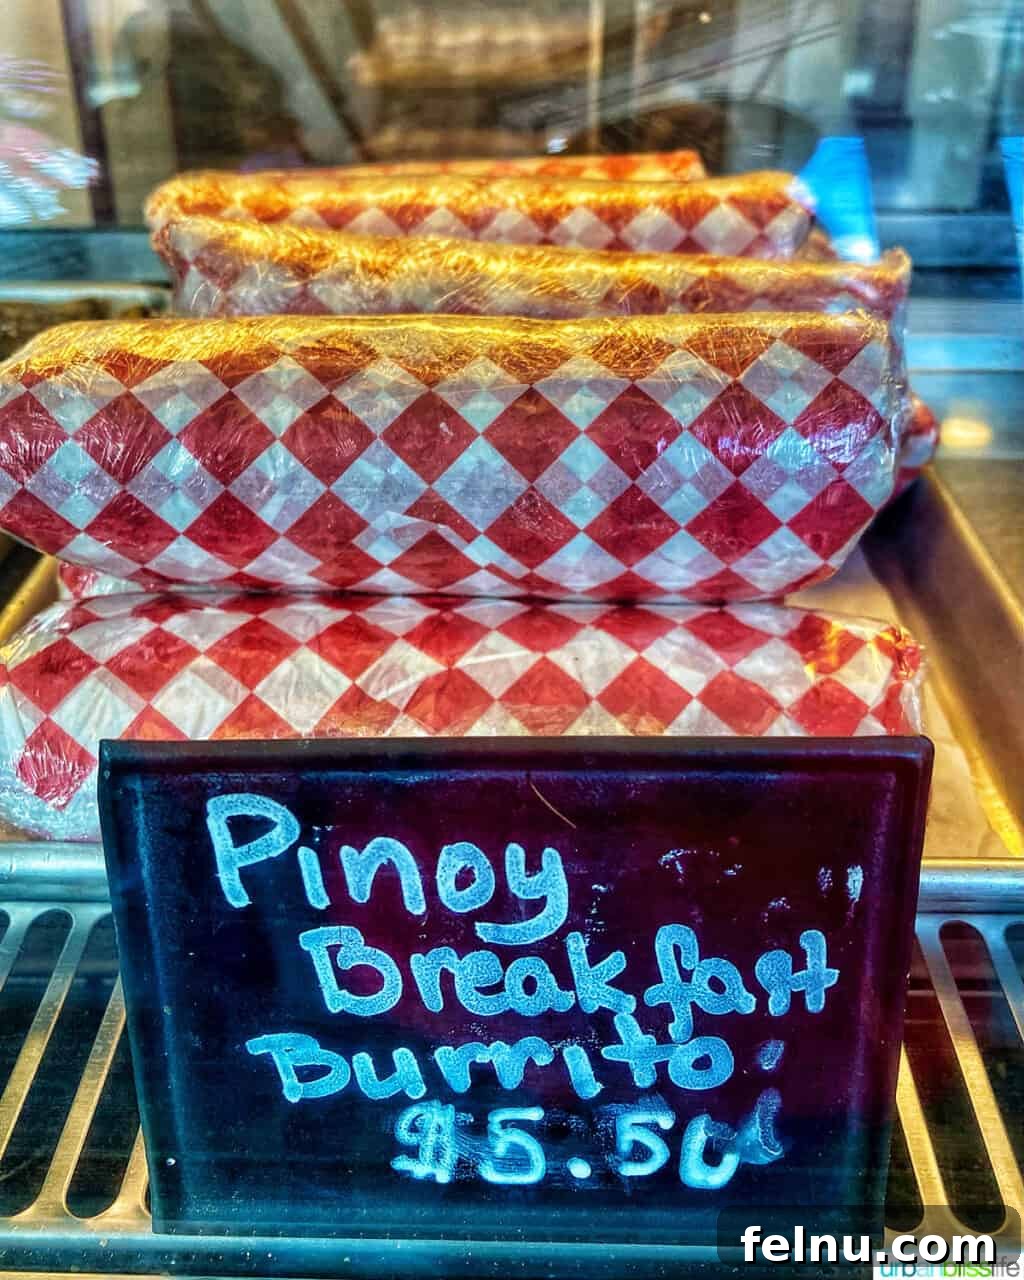 Pinoy
Breakfast
Burrito
$5.50
felnu.com
urbanblisslife